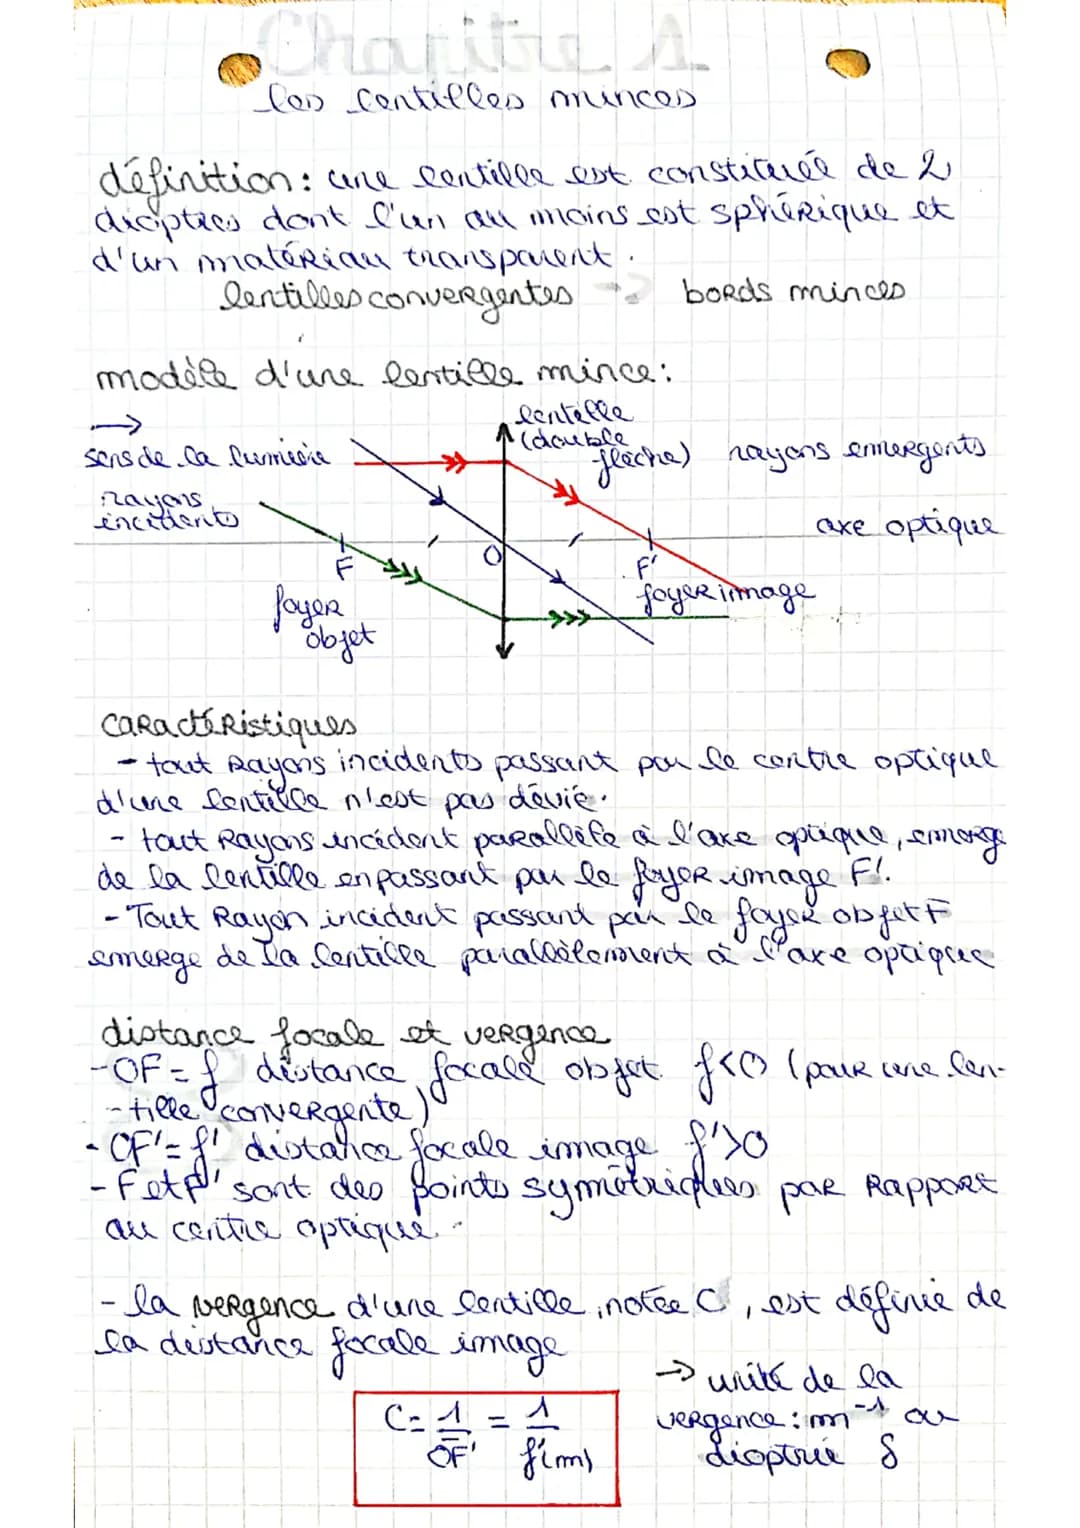 Chapitre 1
les lentilles minces
définition: une lentille est constituée de 2
dioptres dont l'un au moins est sphérique et
d'un matériau transparent.
lentilles convergentes → bords minces
modèle d'une lentille mince:
→
sens de la lumière
lentille
(double
flèche)
rayons émergents
rayons
incidents
axe optique
F
O
F'
foyer
objet
foyer image
caractéristiques
- tout Rayons incidents passant par le centre optique
d'une lentille n'est pas dévié.
- tout Rayons incident parallèle à l'axe optique, émerge
de la lentille en passant par le foyer image F'.
- Tout Rayon incident passant par le foyer objet F
émerge de la lentille parallèlement à l'axe optique
distance focale et vergence
- OF = f distance focale objet f<0 (pour une len-
- tille convergente)
- OF' = f' distance focale image f'>0
- F et F' sont des points symétriques par Rapport
au centre optique.
- la vergence d'une lentille, notée C, est définie de
la distance focale image
→ unité de la
vergence: m⁻¹ ou
dioptrie δ
C = 1/OF' = 1/f'(m)